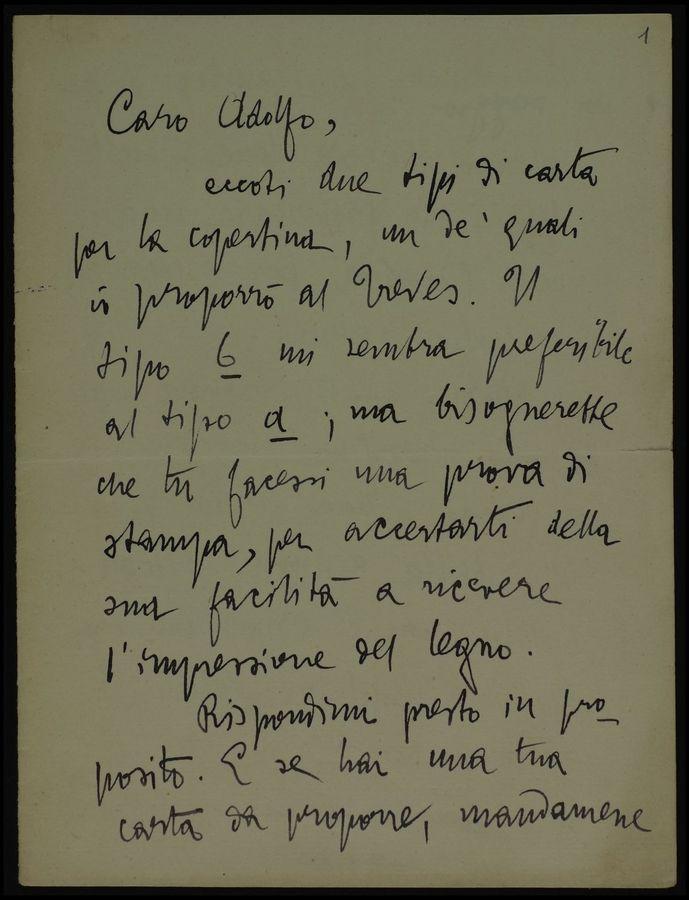 1
Caro Adolfo,
eccoti due tipi di carta
per la copertina, un de' quali
io proporrò al Treves. Il
tipo b mi sembra preferibile
al tipo a ; ma bisognerebbe
che tu facessi una prova di
stampa, per accertarti della
sua facilità a ricevere
l'impressione del legno.
Rispondimi presto in pro-
posito. E se hai una tua
carta da proporre, mandamene